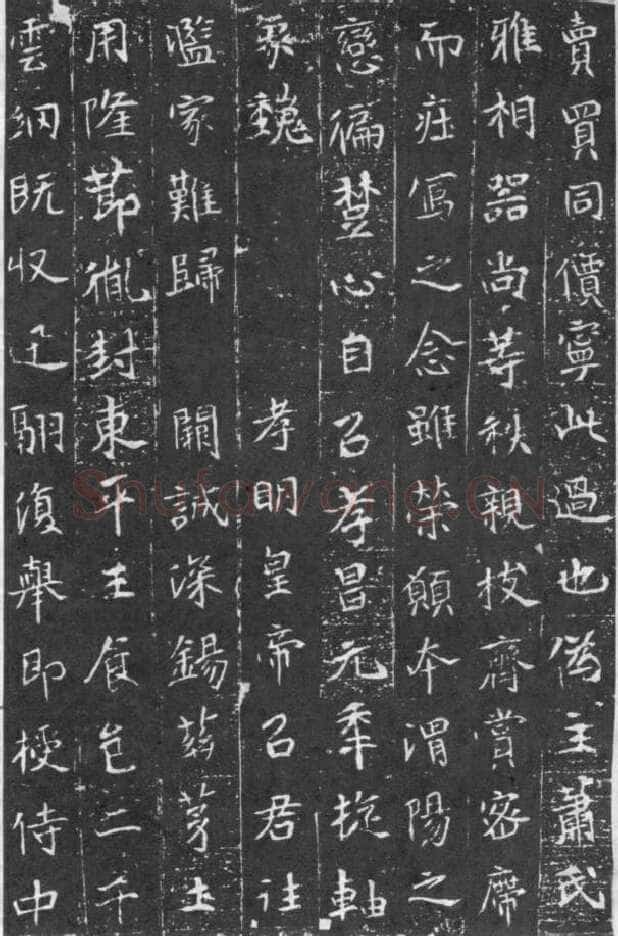 賣買同價寧此過也偽主蕭氏
雅相器尚等秩親枝齊賞密席
而莊舄之念雖榮願本渭陽之
戀偏楚心自以孝昌元年旋軸
象魏　孝明皇帝以君往
濫家難歸　闕誠深錫茲茅土
用隆節胤封東平王食邑二千
雲網既收逸翮復舉即授侍中
Shufawang.CN